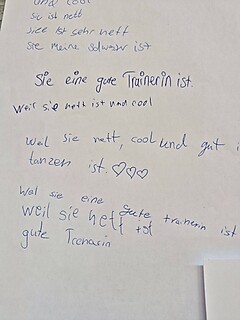 und cool
sie ist nett
siee ist sehr nett
sie meine schwestr ist
Sie eine gute Trainerin ist.
Weil sie nett ist und cool
Weil sie nett, cool und gut i
tanzen ist. ♡♡♡
Wal sie eine
gute trainerin ist
weil sie nett ist
gute Trenarin